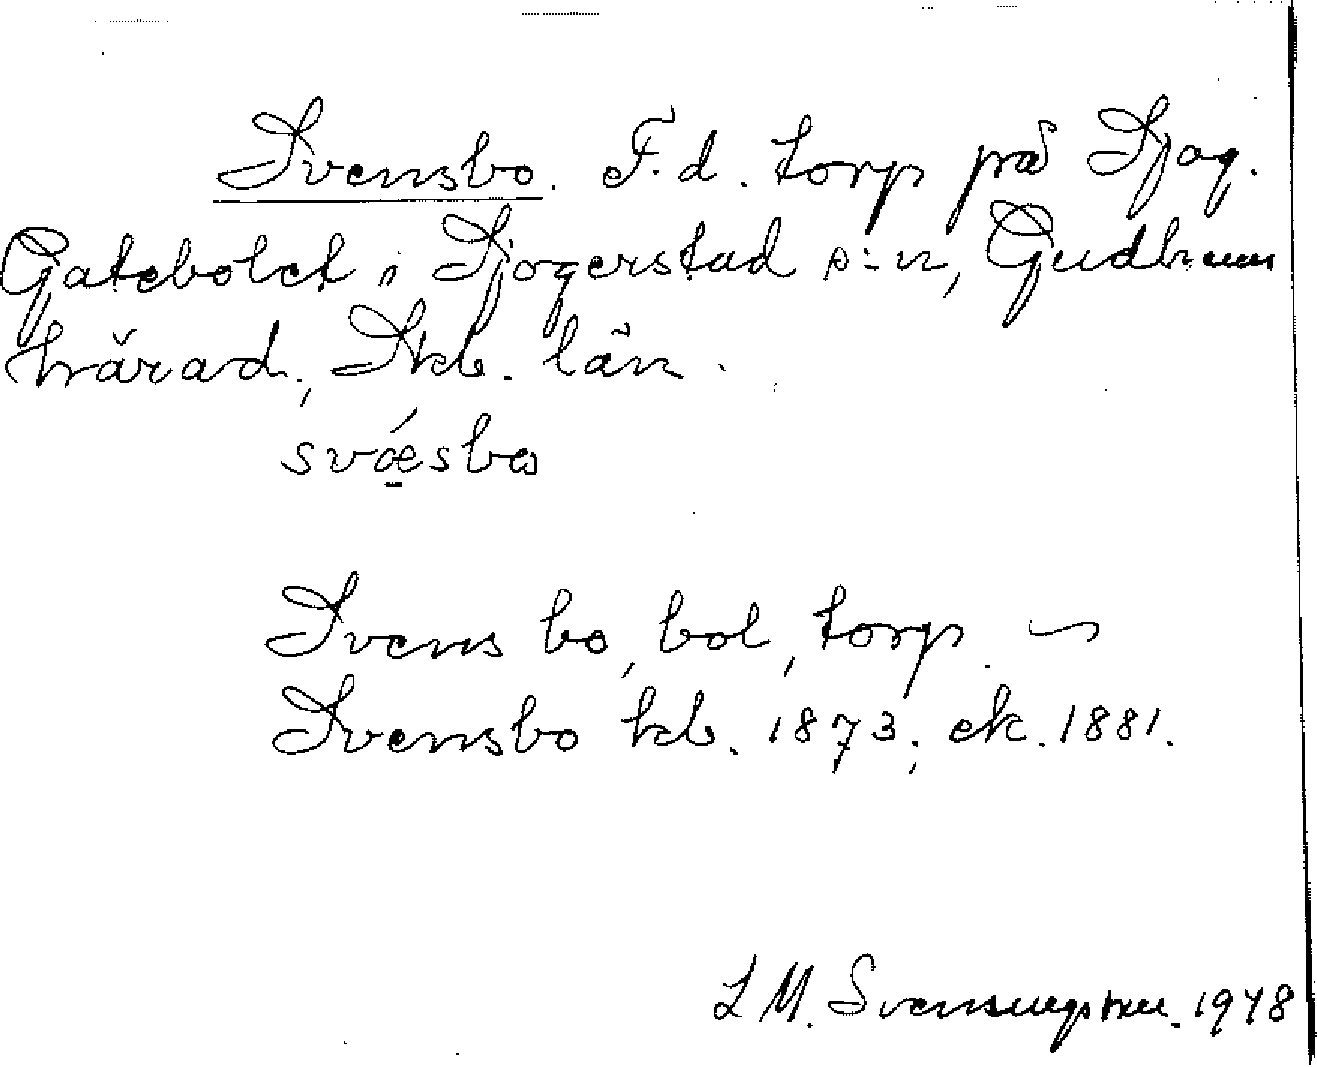 Svensbo. F.d. torp på Sjog.
Gatebolet i Sjogerstad s:n, Gudhems
härad, Skb. län.
svǽsbω
Svens bo, bol, torp. ~
Svensbo hb. 1873; ek. 1881.
L M. Svensungsson. 1948